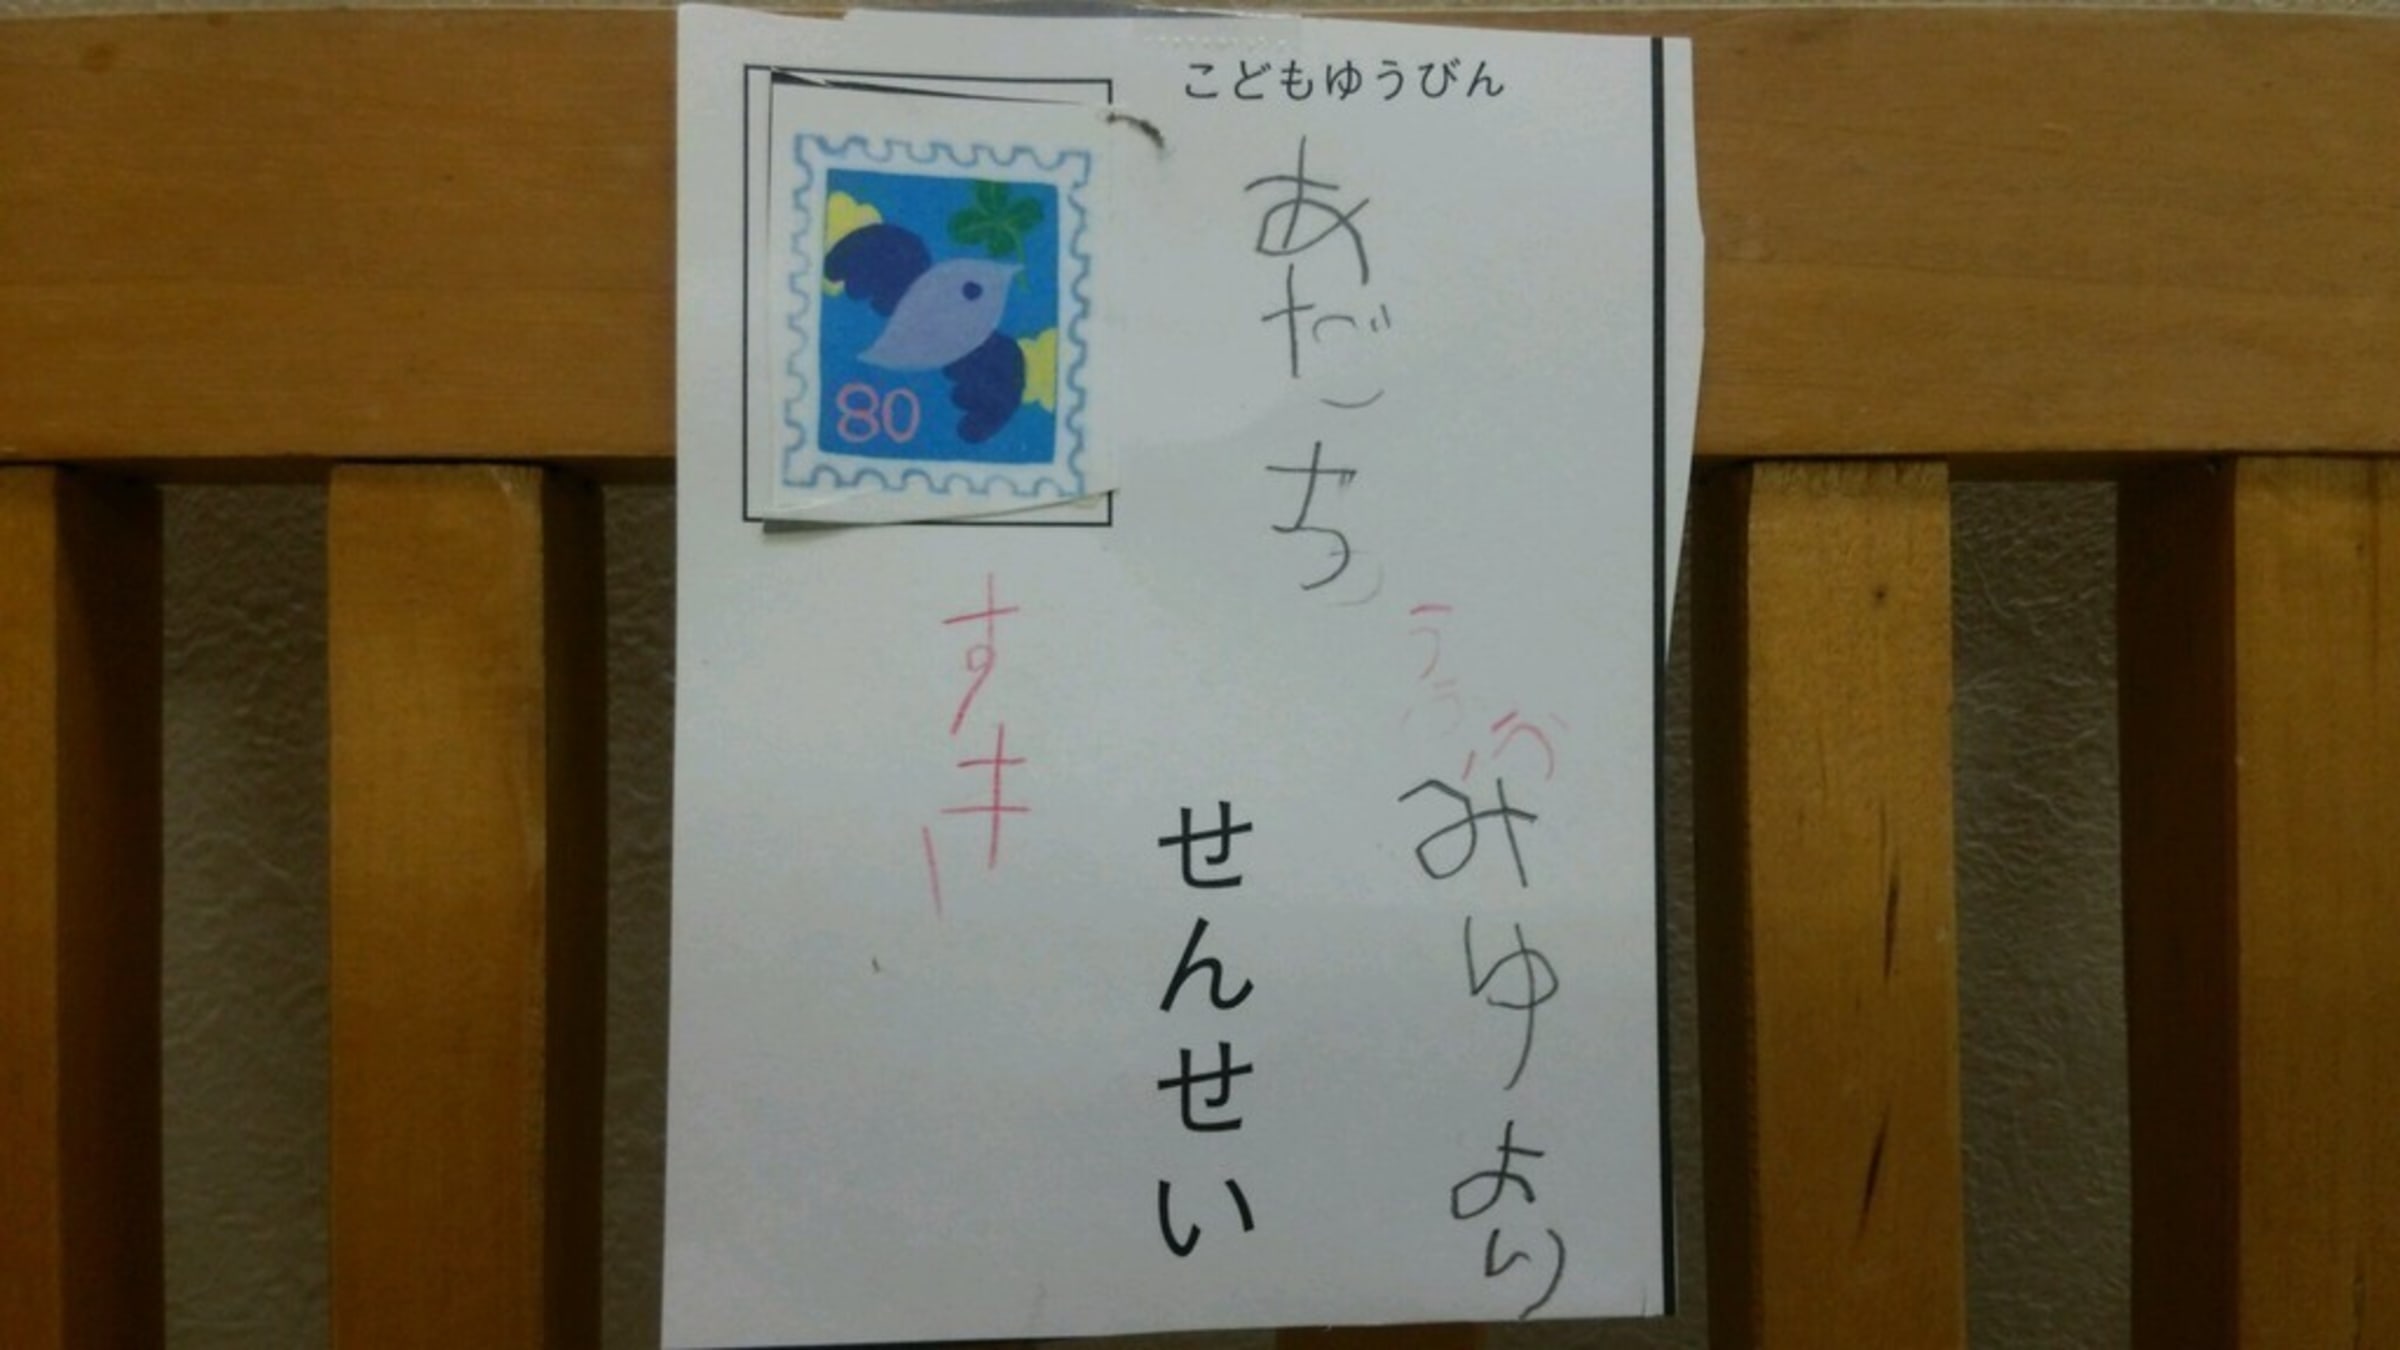 こどもゆうびん
80
あだち
せんせい
みゆより
すき